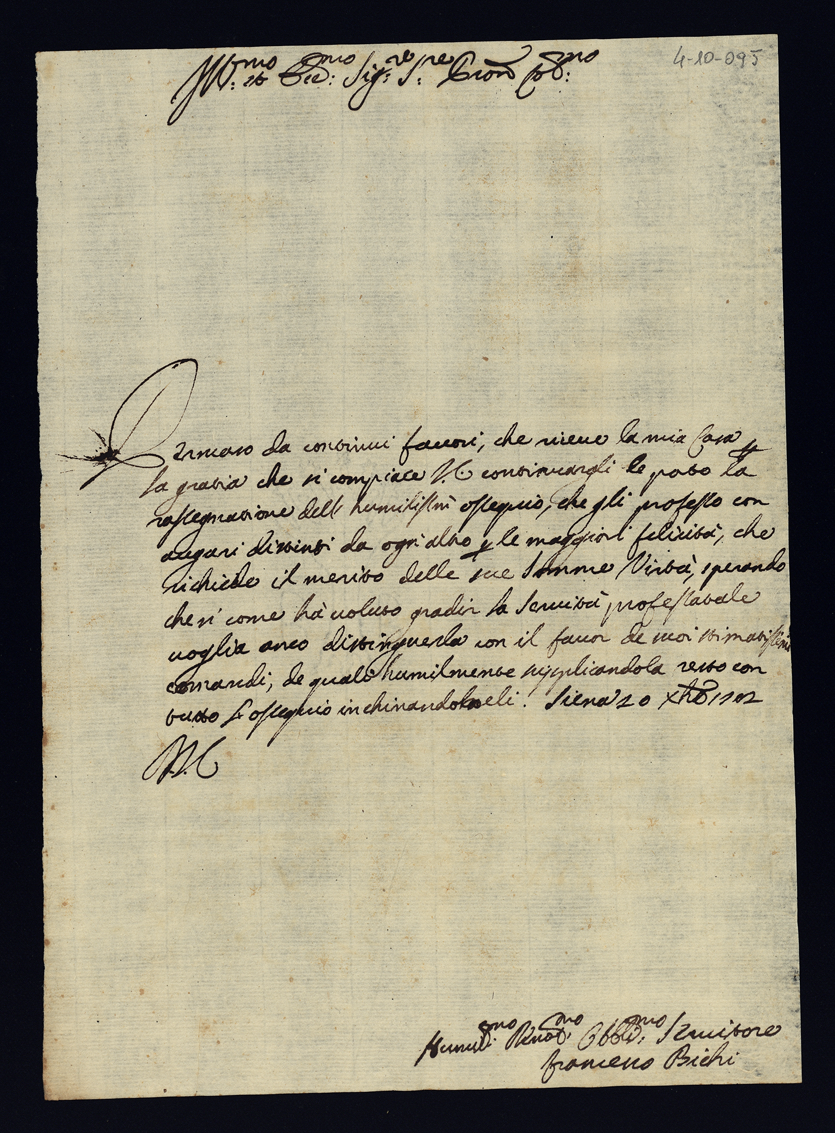 4-10-095
Ill:mo et Ecc:mo Sig:re S:re Pron Col:mo
Permaso da continui favori, che riceve la mia Casa
la gratia che si compiace V.E. continuargli le porto la
rassegnatione dell humilissimo ossequio, che gli professo con
augari distinti da ogn'altro p le maggiori felicità, che
richiede il merito delle sue Somme Virtù, sperando
che si come hà voluto gradir la Servità professatale
voglia anco distinguerla con il favor de suoi stimatissimi
comandi, de quali humilmente supplicandola resto con
tutto l'ossequio inchinandomeli. Siena 20 Xbre 1702
V.E.
Humil:mo Devot:mo Obblig:mo Servitore
Francesco Bichi